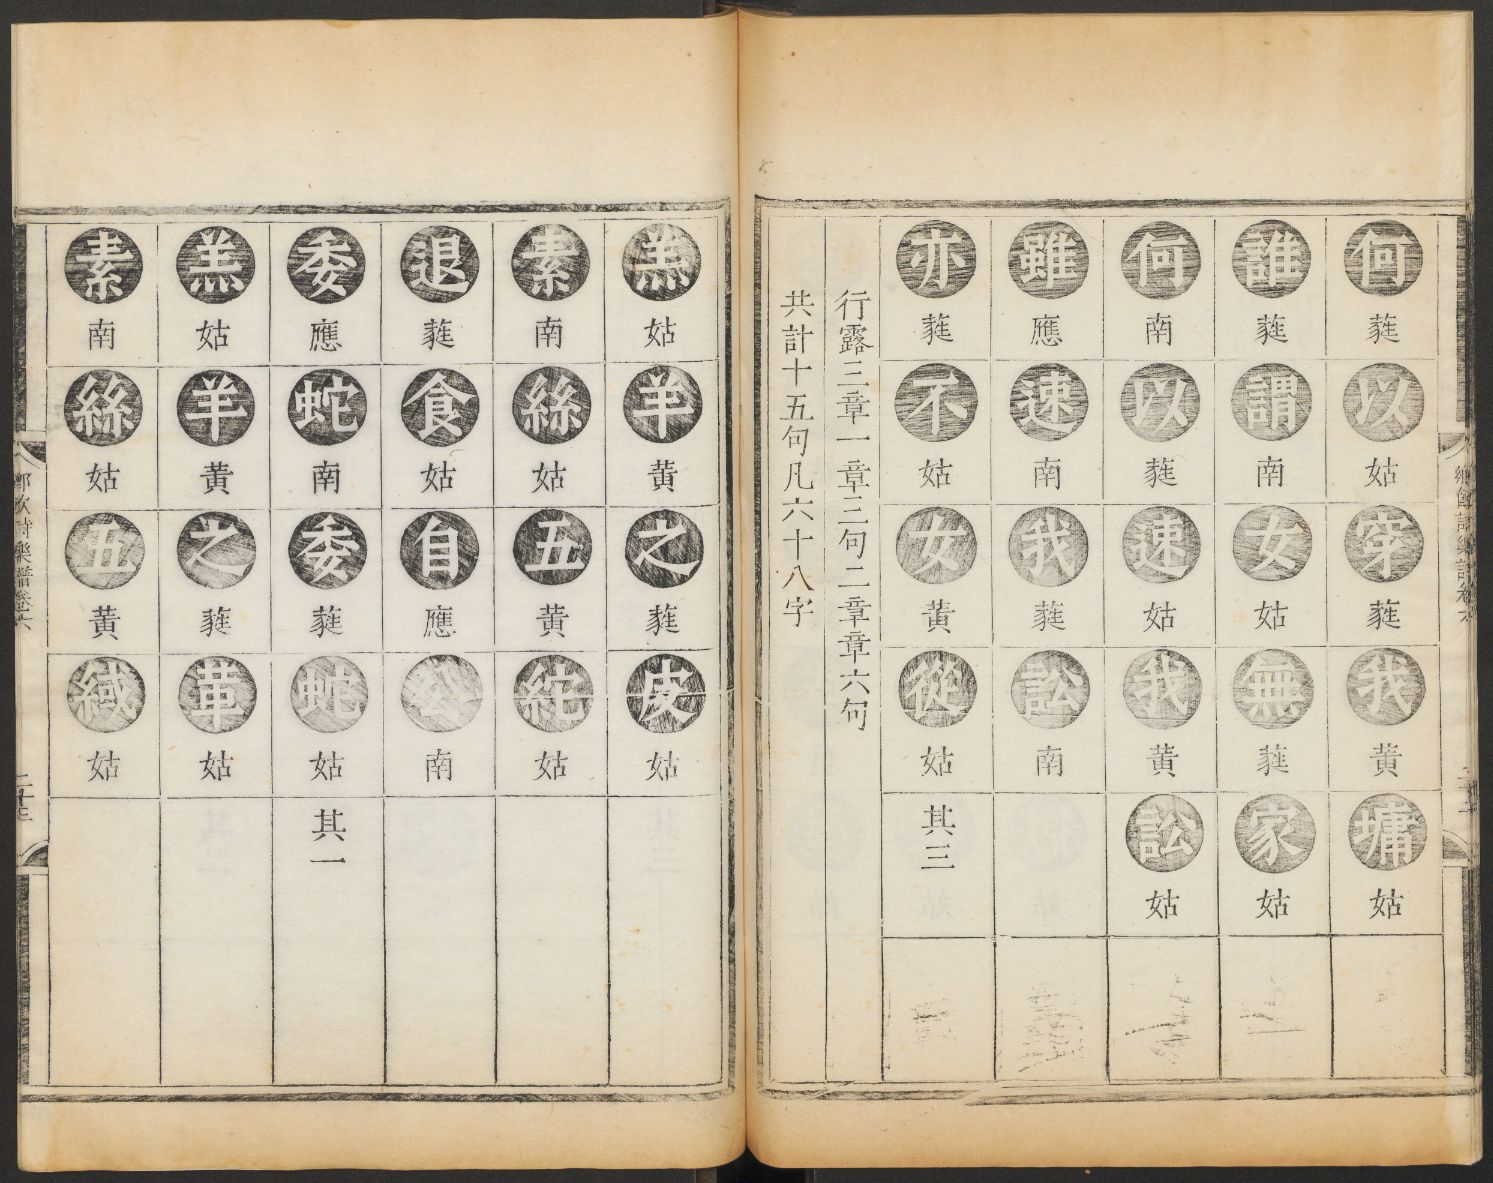 鄉飲詩樂譜卷六
何蕤以姑穿蕤我黃墉姑
誰蕤謂南女姑無蕤家姑
何南以蕤速姑我黃訟姑
雖應速南我蕤訟南
亦蕤不姑女黃從姑其三
行露三章一章三句二章章六句
共計十五句凡六十八字
羔姑羊黃之蕤皮姑
素南絲姑五黃紽姑
退蕤食姑自應公南
委應蛇南委蕤蛇姑其一
羔姑羊黃之蕤革姑
素南絲姑五黃緎姑
鄉飲詩樂譜卷六 二十三